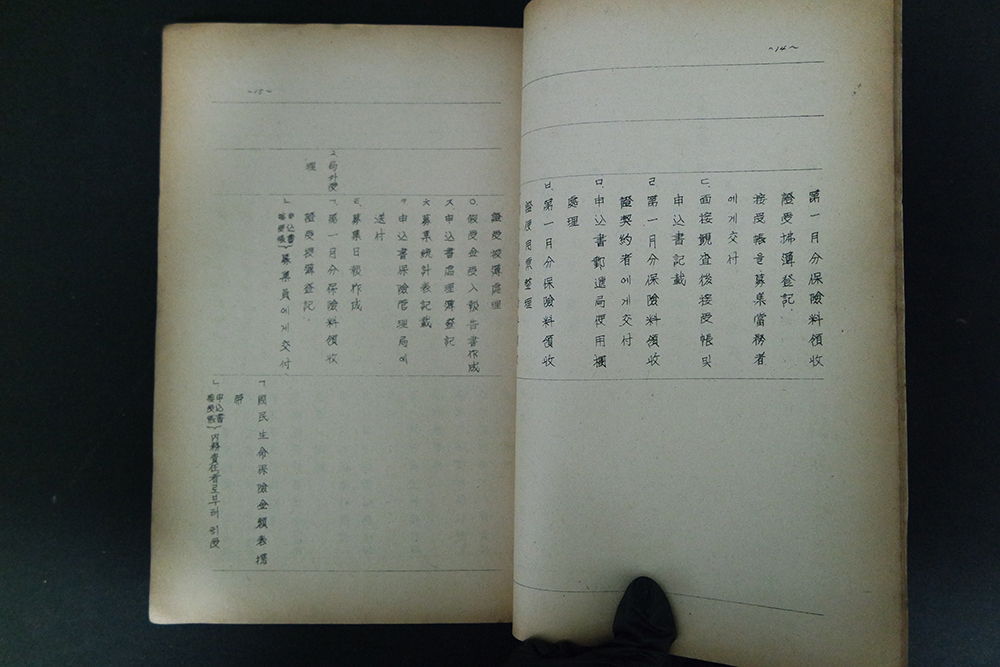 ~14~
第一月分保險料領收
證受拂簿登記
接受帳을募集當務者
에게交付
ㄷ.面接觀査後接受帳및
申込書記載
ㄹ.第一月分保險料領收
證契約者에게交付
ㅁ.申込書郵遞局使用欄
處理
ㅂ.第一月分保險料領收
證受拂簿處理
ㅇ.假受金受入報告書作成
ㅈ.申込書處理簿登記
ㅊ.募集統計表記載
ㅋ.申込書保險管理局에
送付
ㅌ.募集日報作成
ㄱ.第一月分保險料領收
證受拂簿登記
ㄴ.申込書
接受帳
募集員에게交付
ㄱ.國民生命保險金額表携
帶
ㄴ.申込書
接受帳
內務責任者로부터引受